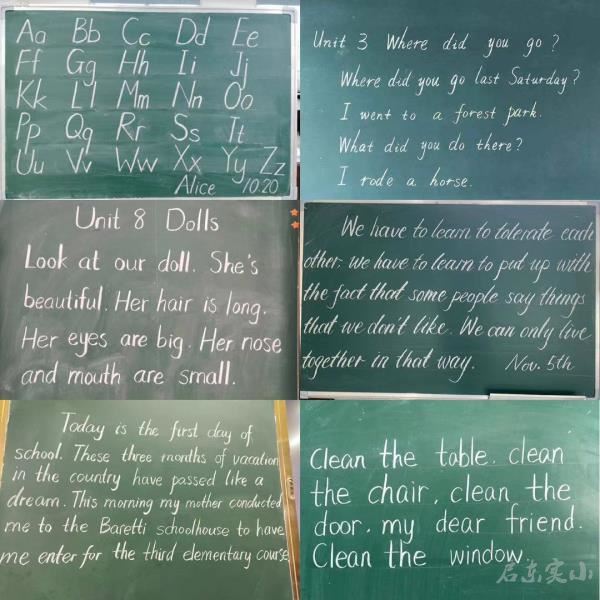 Aa Bb Cc Dd Ee
Ff Gg Hh Ii Jj
Kk Ll Mm Nn Oo
Pp Qq Rr Ss Tt
Uu Vv Ww Xx Yy Zz
Alice 10.20
Unit 3 Where did you go?
Where did you go last Saturday?
I went to a forest park.
What did you do there?
I rode a horse.
Unit 8 Dolls
Look at our doll. She's
beautiful. Her hair is long.
Her eyes are big. Her nose
and mouth are small.
We have to learn to tolerate each
other: we have to learn to put up with
the fact that some people say things
that we don't like. We can only live
together in that way. Nov. 5th
Today is the first day of
school. These three months of vacation
in the country have passed like a
dream. This morning my mother conducted
me to the Baretti schoolhouse to have
me enter for the third elementary course
Clean the table. clean
the chair. clean the
door. my dear friend.
Clean the window.
启东实小